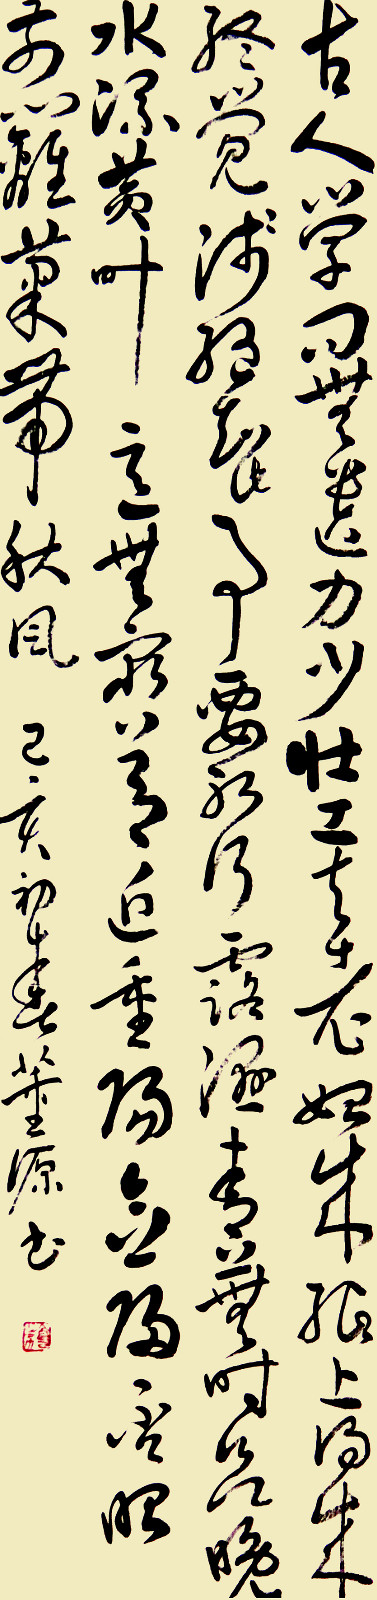 古人学问無遗力少壮工夫老始成纸上得来
终觉浅绝知此事要躬行露湿青蕪时欲晚
水流黄叶意無穷节近重阳念归否眼
前籬菊带秋风己亥初春董源书